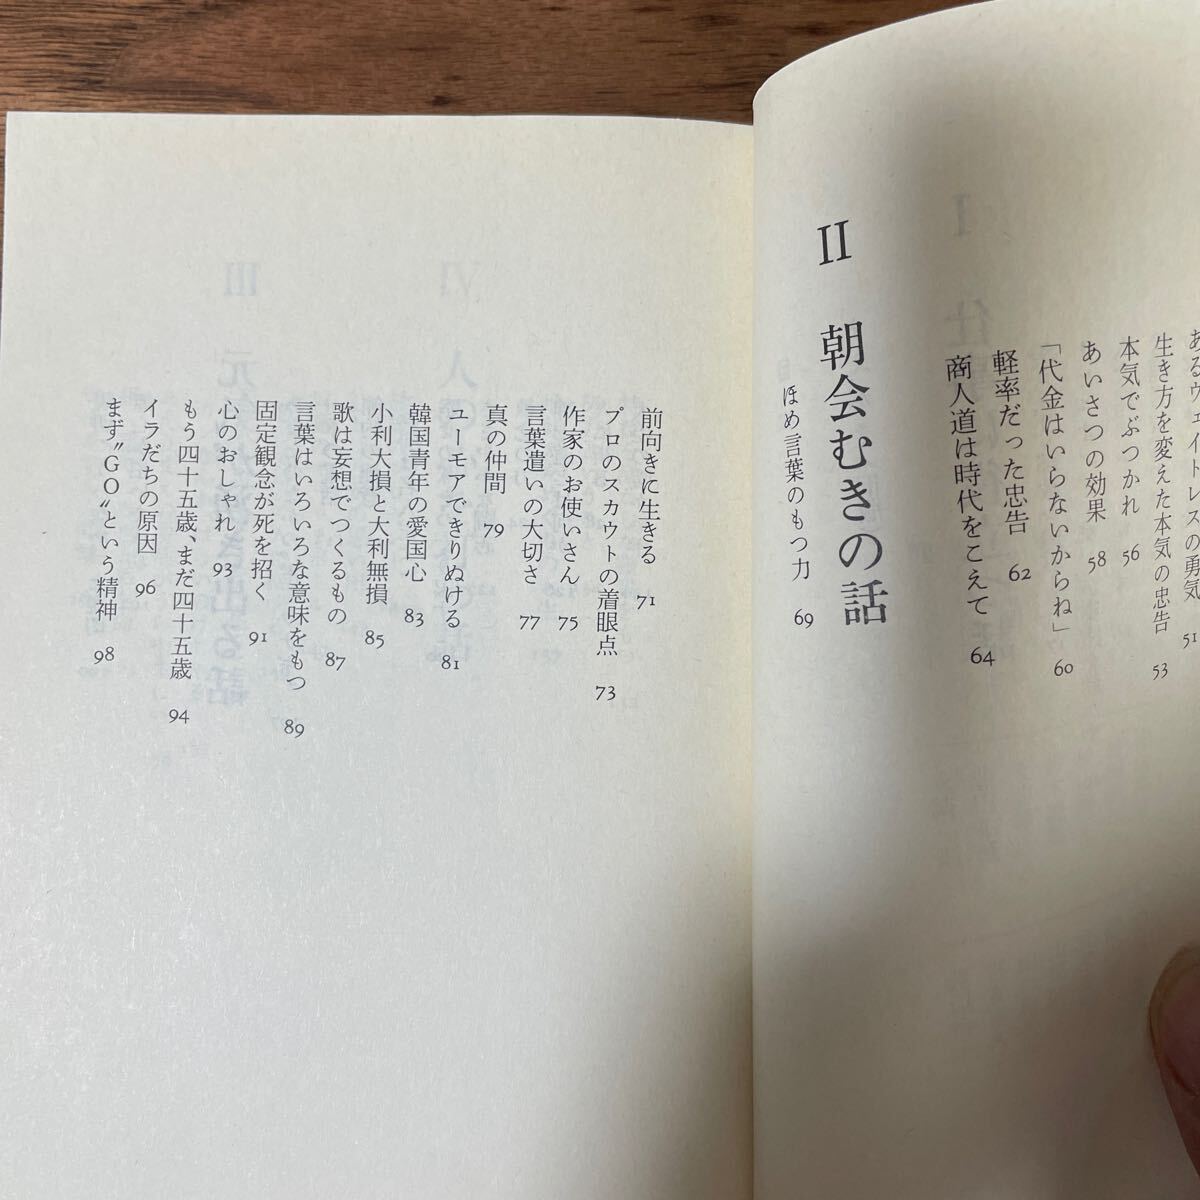 あるウェイトレスの勇気 51
生き方を変えた本気の忠告 53
本気でぶつかれ 56
あいさつの効果 58
「代金はいらないからね」 60
軽率だった忠告 62
商人道は時代をこえて 64
II 朝会むきの話
ほめ言葉のもつ力 69
前向きに生きる 71
プロのスカウトの着眼点 73
作家のお使いさん 75
言葉遣いの大切さ 77
真の仲間 79
ユーモアできりぬける 81
韓国青年の愛国心 83
小利大損と大利無損 85
歌は妄想でつくるもの 87
言葉はいろいろな意味をもつ 89
固定観念が死を招く 91
心のおしゃれ 93
もう四十五歳、まだ四十五歳 94
イラだちの原因 96
まず〝GO〟という精神 98